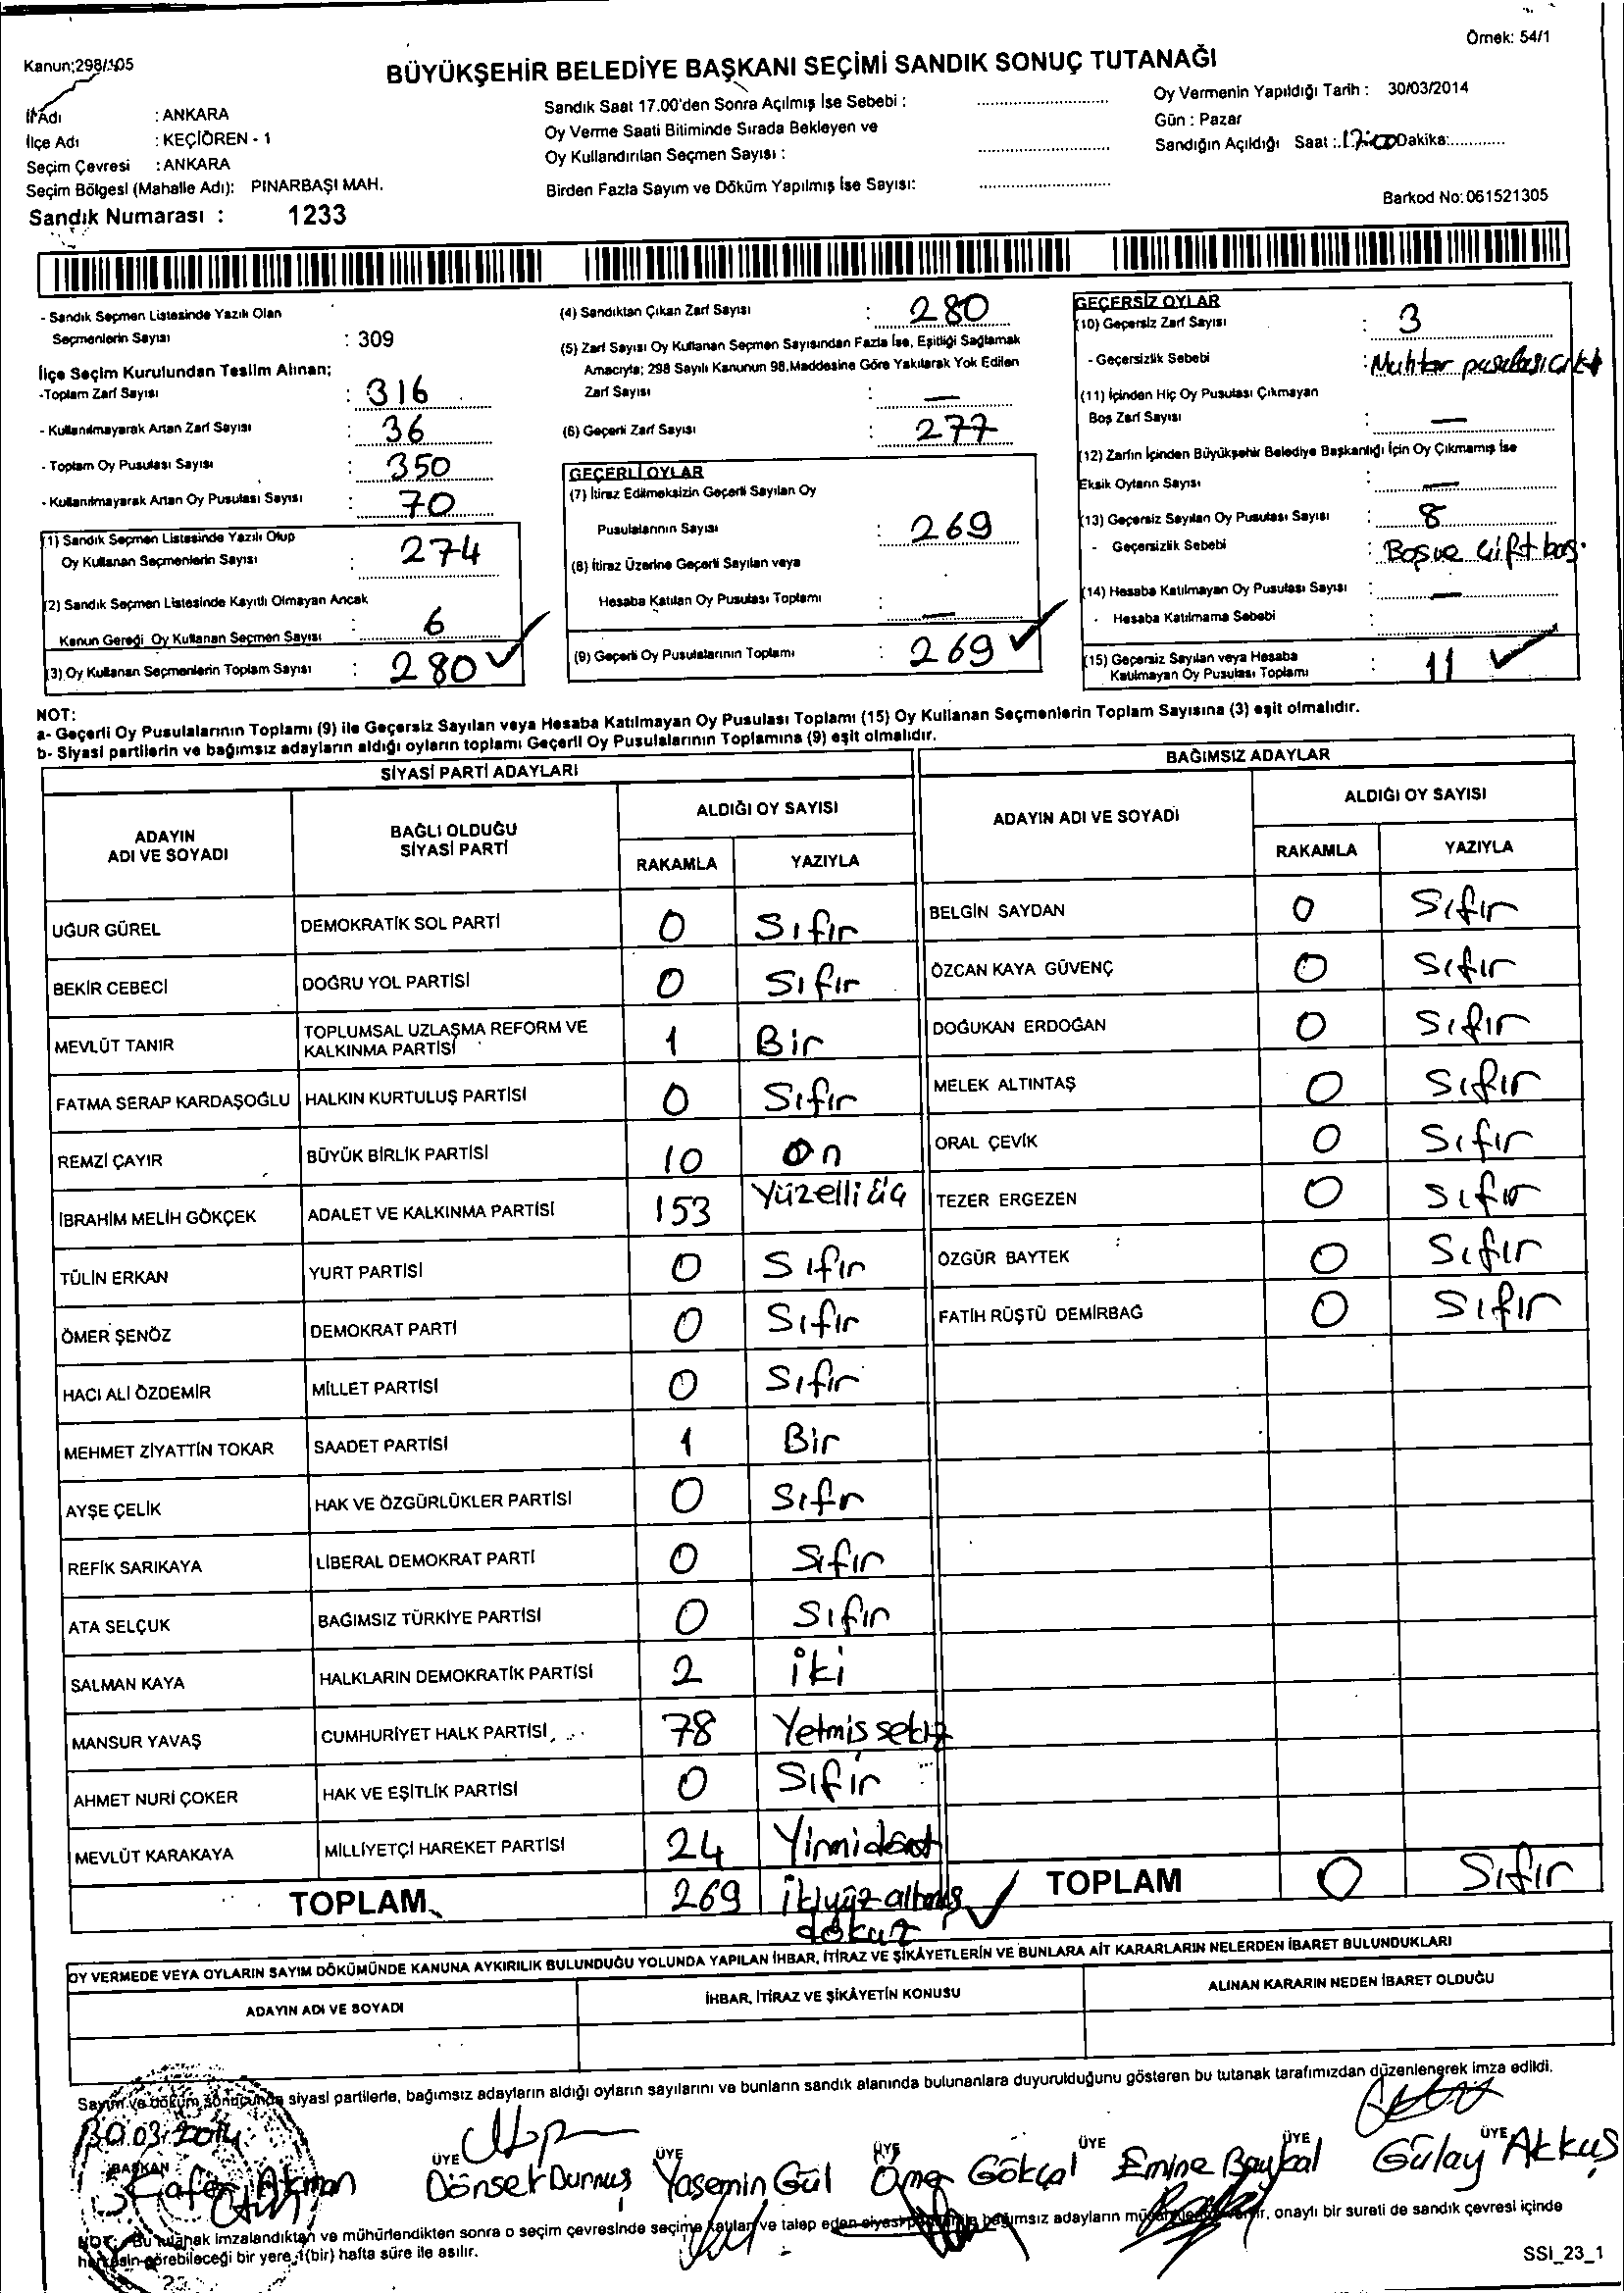 Örnek: 54/1
Kanun;298/105
BÜYÜKŞEHİR BELEDİYE BAŞKANI SEÇİMİ SANDIK SONUÇ TUTANAĞI
İl Adı : ANKARA
İlçe Adı : KEÇİÖREN - 1
Seçim Çevresi : ANKARA
Seçim Bölgesi (Mahalle Adı): PINARBAŞI MAH.
Sandık Numarası : 1233
Sandık Saat 17.00'den Sonra Açılmış İse Sebebi :
Oy Verme Saati Bitiminde Sırada Bekleyen ve
Oy Kullandırılan Seçmen Sayısı :
Birden Fazla Sayım ve Döküm Yapılmış İse Sayısı:
Oy Vermenin Yapıldığı Tarih : 30/03/2014
Gün : Pazar
Sandığın Açıldığı Saat : 17:00 Dakika:
Barkod No: 061521305
- Sandık Seçmen Listesinde Yazılı Olan
Seçmenlerin Sayısı : 309
İlçe Seçim Kurulundan Teslim Alınan;
-Toplam Zarf Sayısı : 316
- Kullanılmayarak Artan Zarf Sayısı : 36
- Toplam Oy Pusulası Sayısı : 350
- Kullanılmayarak Artan Oy Pusulası Sayısı : 70
(1) Sandık Seçmen Listesinde Yazılı Olup
Oy Kullanan Seçmenlerin Sayısı : 274
(2) Sandık Seçmen Listesinde Kayıtlı Olmayan Ancak
Kanun Gereği Oy Kullanan Seçmen Sayısı : 6
(3) Oy Kullanan Seçmenlerin Toplam Sayısı : 280
(4) Sandıktan Çıkan Zarf Sayısı : 280
(5) Zarf Sayısı Oy Kullanan Seçmen Sayısından Fazla İse, Eşitliği Sağlamak
Amacıyla; 298 Sayılı Kanunun 98.Maddesine Göre Yakılarak Yok Edilen
Zarf Sayısı : —
(6) Geçerli Zarf Sayısı : 277
GEÇERLİ OYLAR
(7) İtiraz Edilmeksizin Geçerli Sayılan Oy
Pusulalarının Sayısı : 269
(8) İtiraz Üzerine Geçerli Sayılan veya
Hesaba Katılan Oy Pusulası Toplamı : —
(9) Geçerli Oy Pusulalarının Toplamı : 269
GEÇERSİZ OYLAR
(10) Geçersiz Zarf Sayısı : 3
- Geçersizlik Sebebi : Muhtar pusulası çıktı
(11) İçinden Hiç Oy Pusulası Çıkmayan
Boş Zarf Sayısı : —
(12) Zarfın İçinden Büyükşehir Belediye Başkanlığı İçin Oy Çıkmamış İse
Eksik Oyların Sayısı : —
(13) Geçersiz Sayılan Oy Pusulası Sayısı : 8
- Geçersizlik Sebebi : Boş ve çift bas.
(14) Hesaba Katılmayan Oy Pusulası Sayısı : —
- Hesaba Katılmama Sebebi
(15) Geçersiz Sayılan veya Hesaba
Katılmayan Oy Pusulası Toplamı : 11
NOT:
a- Geçerli Oy Pusulalarının Toplamı (9) ile Geçersiz Sayılan veya Hesaba Katılmayan Oy Pusulası Toplamı (15) Oy Kullanan Seçmenlerin Toplam Sayısına (3) eşit olmalıdır.
b- Siyasi partilerin ve bağımsız adayların aldığı oyların toplamı Geçerli Oy Pusulalarının Toplamına (9) eşit olmalıdır.
SİYASİ PARTİ ADAYLARI
ADAYIN
ADI VE SOYADI
BAĞLI OLDUĞU
SİYASİ PARTİ
ALDIĞI OY SAYISI
RAKAMLA YAZIYLA
UĞUR GÜREL DEMOKRATİK SOL PARTİ 0 Sıfır
BEKİR CEBECİ DOĞRU YOL PARTİSİ 0 Sıfır
MEVLÜT TANIR TOPLUMSAL UZLAŞMA REFORM VE
KALKINMA PARTİSİ 1 Bir
FATMA SERAP KARDAŞOĞLU HALKIN KURTULUŞ PARTİSİ 0 Sıfır
REMZİ ÇAYIR BÜYÜK BİRLİK PARTİSİ 10 On
İBRAHİM MELİH GÖKÇEK ADALET VE KALKINMA PARTİSİ 153 Yüzelli üç
TÜLİN ERKAN YURT PARTİSİ 0 Sıfır
ÖMER ŞENÖZ DEMOKRAT PARTİ 0 Sıfır
HACI ALİ ÖZDEMİR MİLLET PARTİSİ 0 Sıfır
MEHMET ZİYATTİN TOKAR SAADET PARTİSİ 1 Bir
AYŞE ÇELİK HAK VE ÖZGÜRLÜKLER PARTİSİ 0 Sıfır
REFİK SARIKAYA LİBERAL DEMOKRAT PARTİ 0 Sıfır
ATA SELÇUK BAĞIMSIZ TÜRKİYE PARTİSİ 0 Sıfır
SALMAN KAYA HALKLARIN DEMOKRATİK PARTİSİ 2 iki
MANSUR YAVAŞ CUMHURİYET HALK PARTİSİ 78 Yetmis sekiz
AHMET NURİ ÇOKER HAK VE EŞİTLİK PARTİSİ 0 Sıfır
MEVLÜT KARAKAYA MİLLİYETÇİ HAREKET PARTİSİ 24 Yirmidört
TOPLAM 269 ikiyüz altmış
dokuz
BAĞIMSIZ ADAYLAR
ADAYIN ADI VE SOYADI
ALDIĞI OY SAYISI
RAKAMLA YAZIYLA
BELGİN SAYDAN 0 Sıfır
ÖZCAN KAYA GÜVENÇ 0 Sıfır
DOĞUKAN ERDOĞAN 0 Sıfır
MELEK ALTINTAŞ 0 Sıfır
ORAL ÇEVİK 0 Sıfır
TEZER ERGEZEN 0 Sıfır
ÖZGÜR BAYTEK 0 Sıfır
FATİH RÜŞTÜ DEMİRBAĞ 0 Sıfır
TOPLAM 0 Sıfır
OY VERMEDE VEYA OYLARIN SAYIM DÖKÜMÜNDE KANUNA AYKIRILIK BULUNDUĞU YOLUNDA YAPILAN İHBAR, İTİRAZ VE ŞİKÂYETLERİN VE BUNLARA AİT KARARLARIN NELERDEN İBARET BULUNDUKLARI
ADAYIN ADI VE SOYADI İHBAR, İTİRAZ VE ŞİKÂYETİN KONUSU ALINAN KARARIN NEDEN İBARET OLDUĞU
Sayım ve döküm sonucunda siyasi partilerle, bağımsız adayların aldığı oyların sayılarını ve bunların sandık alanında bulunanlara duyurulduğunu gösteren bu tutanak tarafımızdan düzenlenerek imza edildi.
30.03.2014
BAŞKAN ÜYE ÜYE ÜYE ÜYE ÜYE ÜYE
Cafer Akman Dönsel Durmuş Yasemin Gül Ömer Gökçal Emine Baykal Gülay Akkuş
NOT: Bu tutanak imzalandıktan ve mühürlendikten sonra o seçim çevresinde seçime katılan ve talep eden siyasi bağımsız adayların onaylı bir sureti de sandık çevresi içinde
herkesin görebileceği bir yere 1(bir) hafta süre ile asılır.
SSİ_23_1